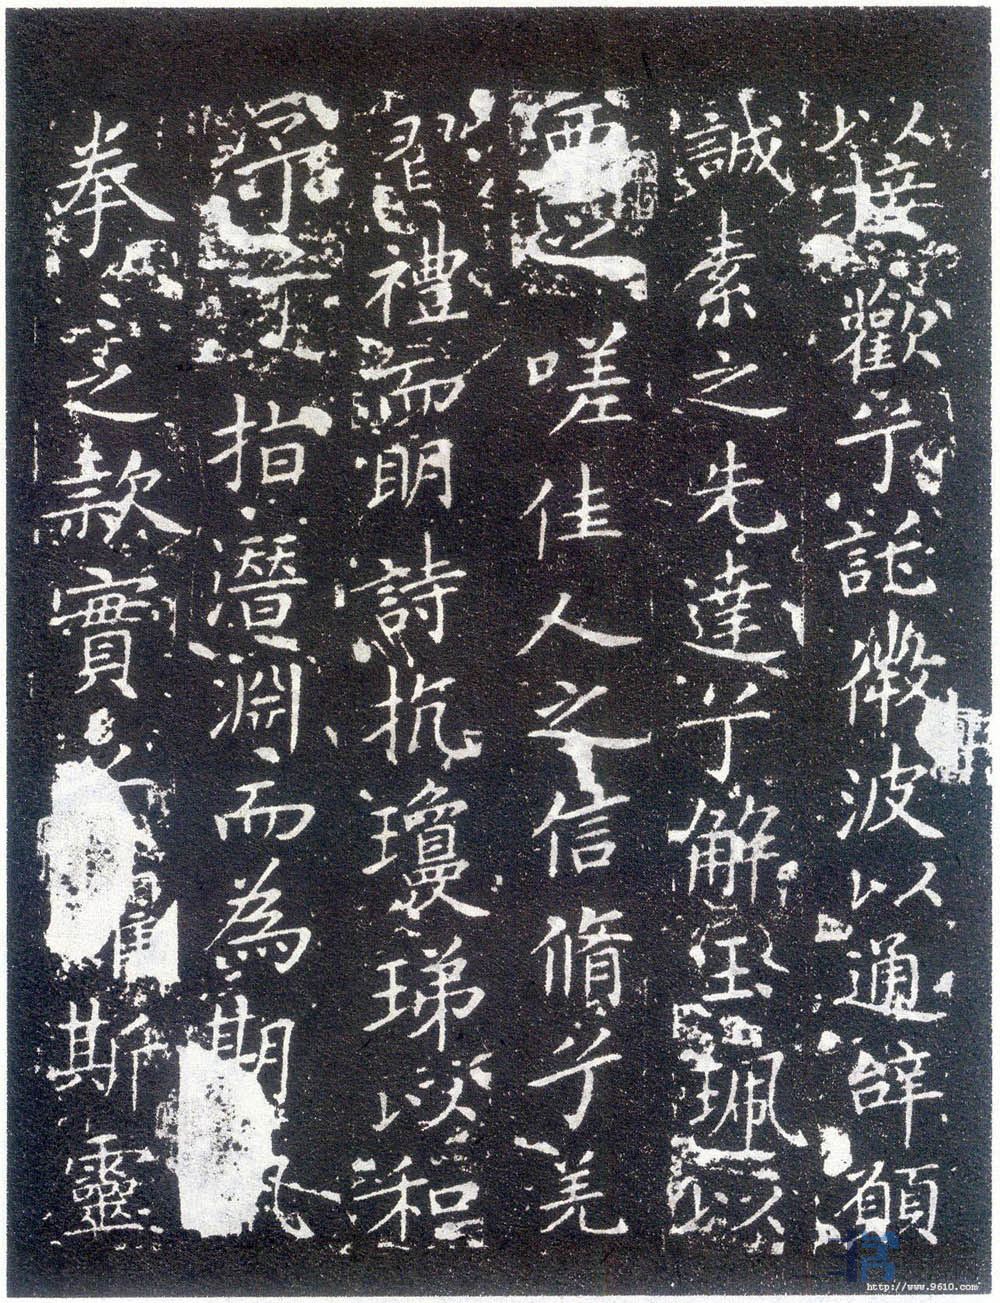 以接歡兮託微波以通辭願
誠素之先達兮解玉珮以
要之嗟佳人之信脩兮羌
習禮而明詩抗瓊珶以和
予兮指潛淵而為期
拳〻之款實兮懼斯靈
http://www.9610.com